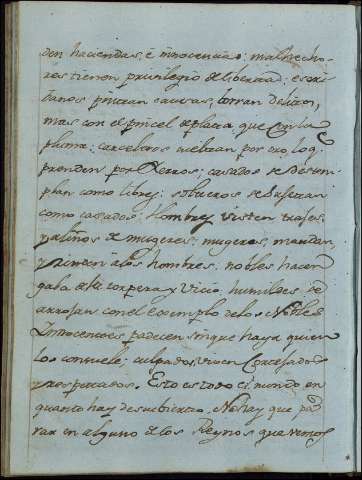 den haciendas, è innocencias; malhecho-
res tienen privilegio de libertad; escri-
vanos pintan causas, borran delitos,
mas con el pincel de plata, que con la
pluma; carceleros sueltan por oro lo q.
prenden por yerros; casados se desem-
plan como libres; solteros se
como casados; hombres visten trages,
y aliños de mugeres; mugeres mandan,
y a los hombres; nobles hacen
gala de la torpeza, y vicio; humildes se
arrojan con el exemplo de los Nobles;
Innocentes padecen sin que haya quien
los consuele; culpados viven
y respetados. Esto es todo el mundo en
quanto hay descubierto. No hay que pa-
rar en alguno de los Reynos que vemos